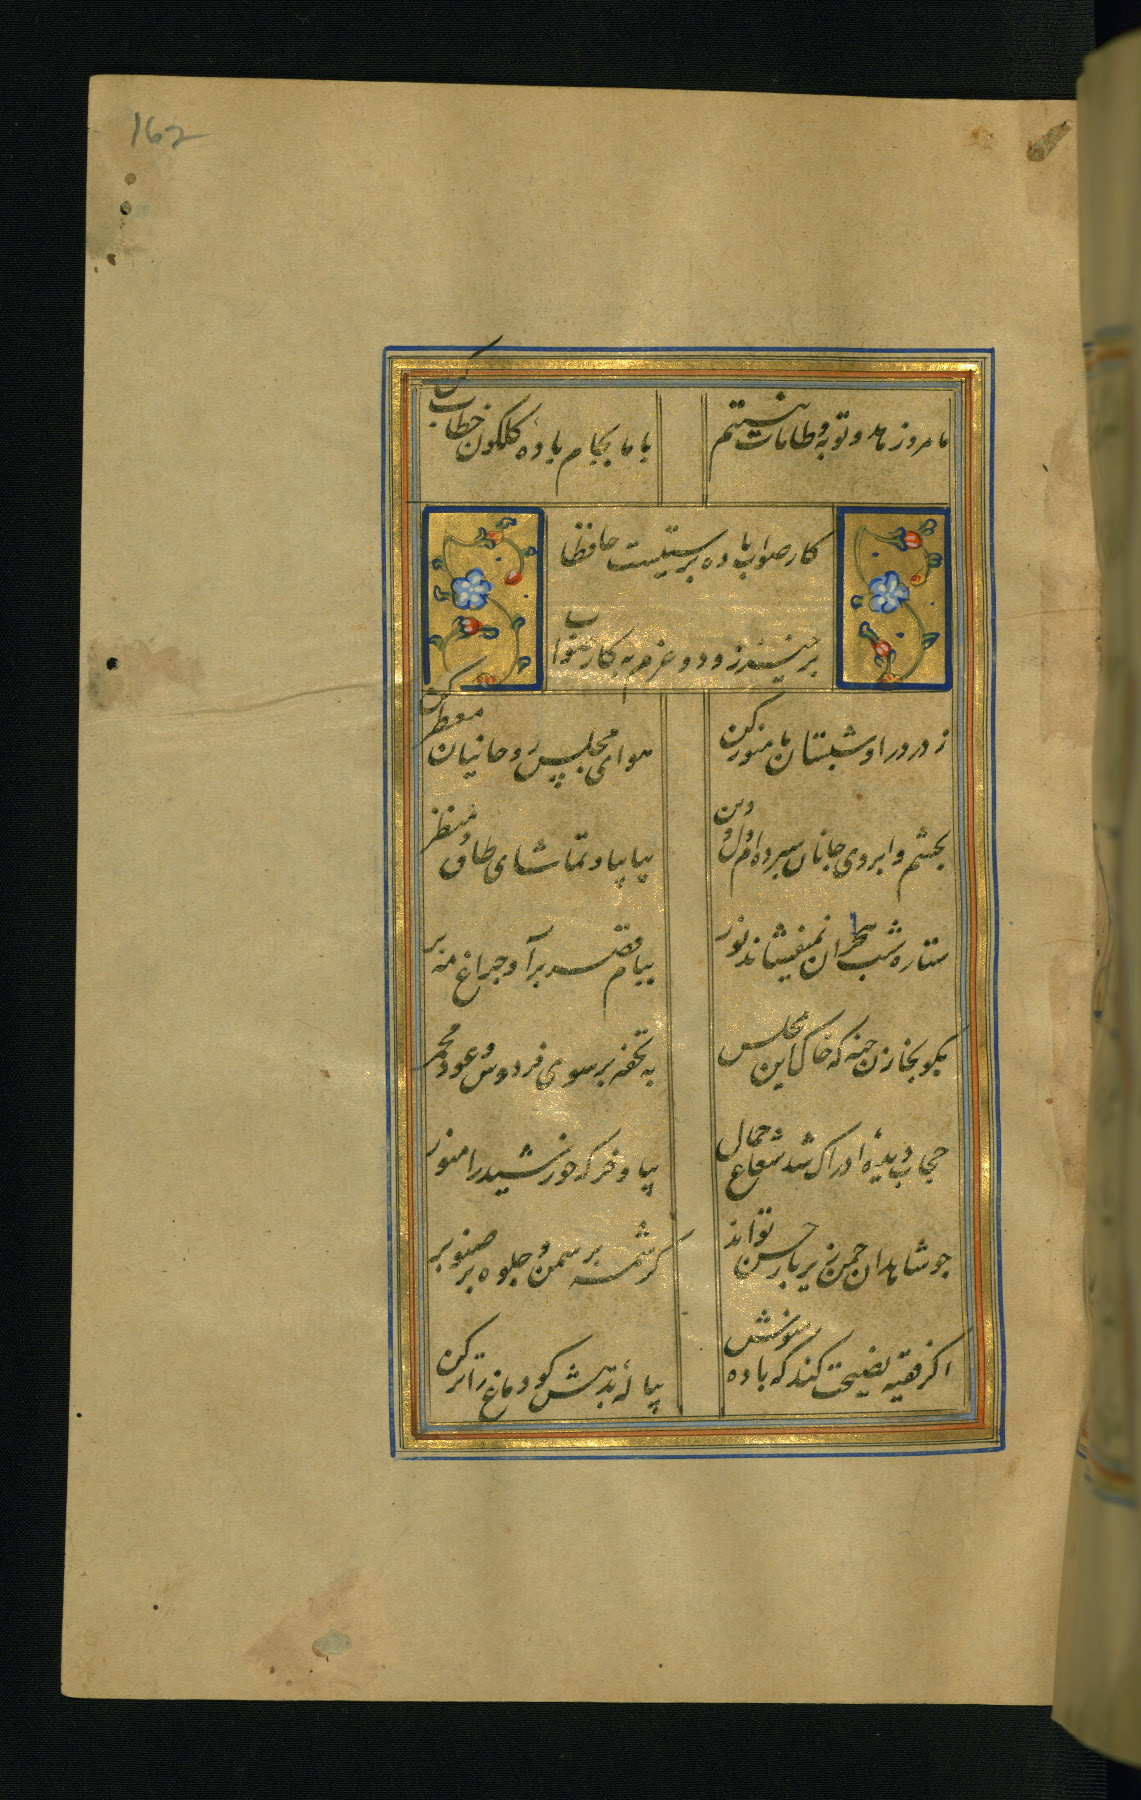 162
ما مرد زهد و توبه و طامات نیستیم
با ما بجام باده کلکون خطاب کن
کار صواب باده پرستیست حافظا
برخیز زود و عزم به کار صواب کن
ز در درا و شبستان ما منور کن
هوای مجلس روحانیان معطر کن
بچشم و ابروی جانان سپرده ام دل و دین
بیا بیا و تماشای طاق و منظر
ستاره شب هجران نمیفشاند نور
ببام قصر برآ و چراغ مه بر
بکو بخازن جنه که خاک این مجلس
به تحفه بر سوی فردوس و عود مجمر
حجاب دیدهٔ ادراک شد شعاع جمال
بیا و خرکه خورشید را منور
چو شاهدان چمن زیر بار حسن تواند
کرشمه بر سمن و جلوه بر صنوبر
اکر فقیه نصیحت کند که باده منوش
پیالهٔ بدهش کو دماغ را تر کن